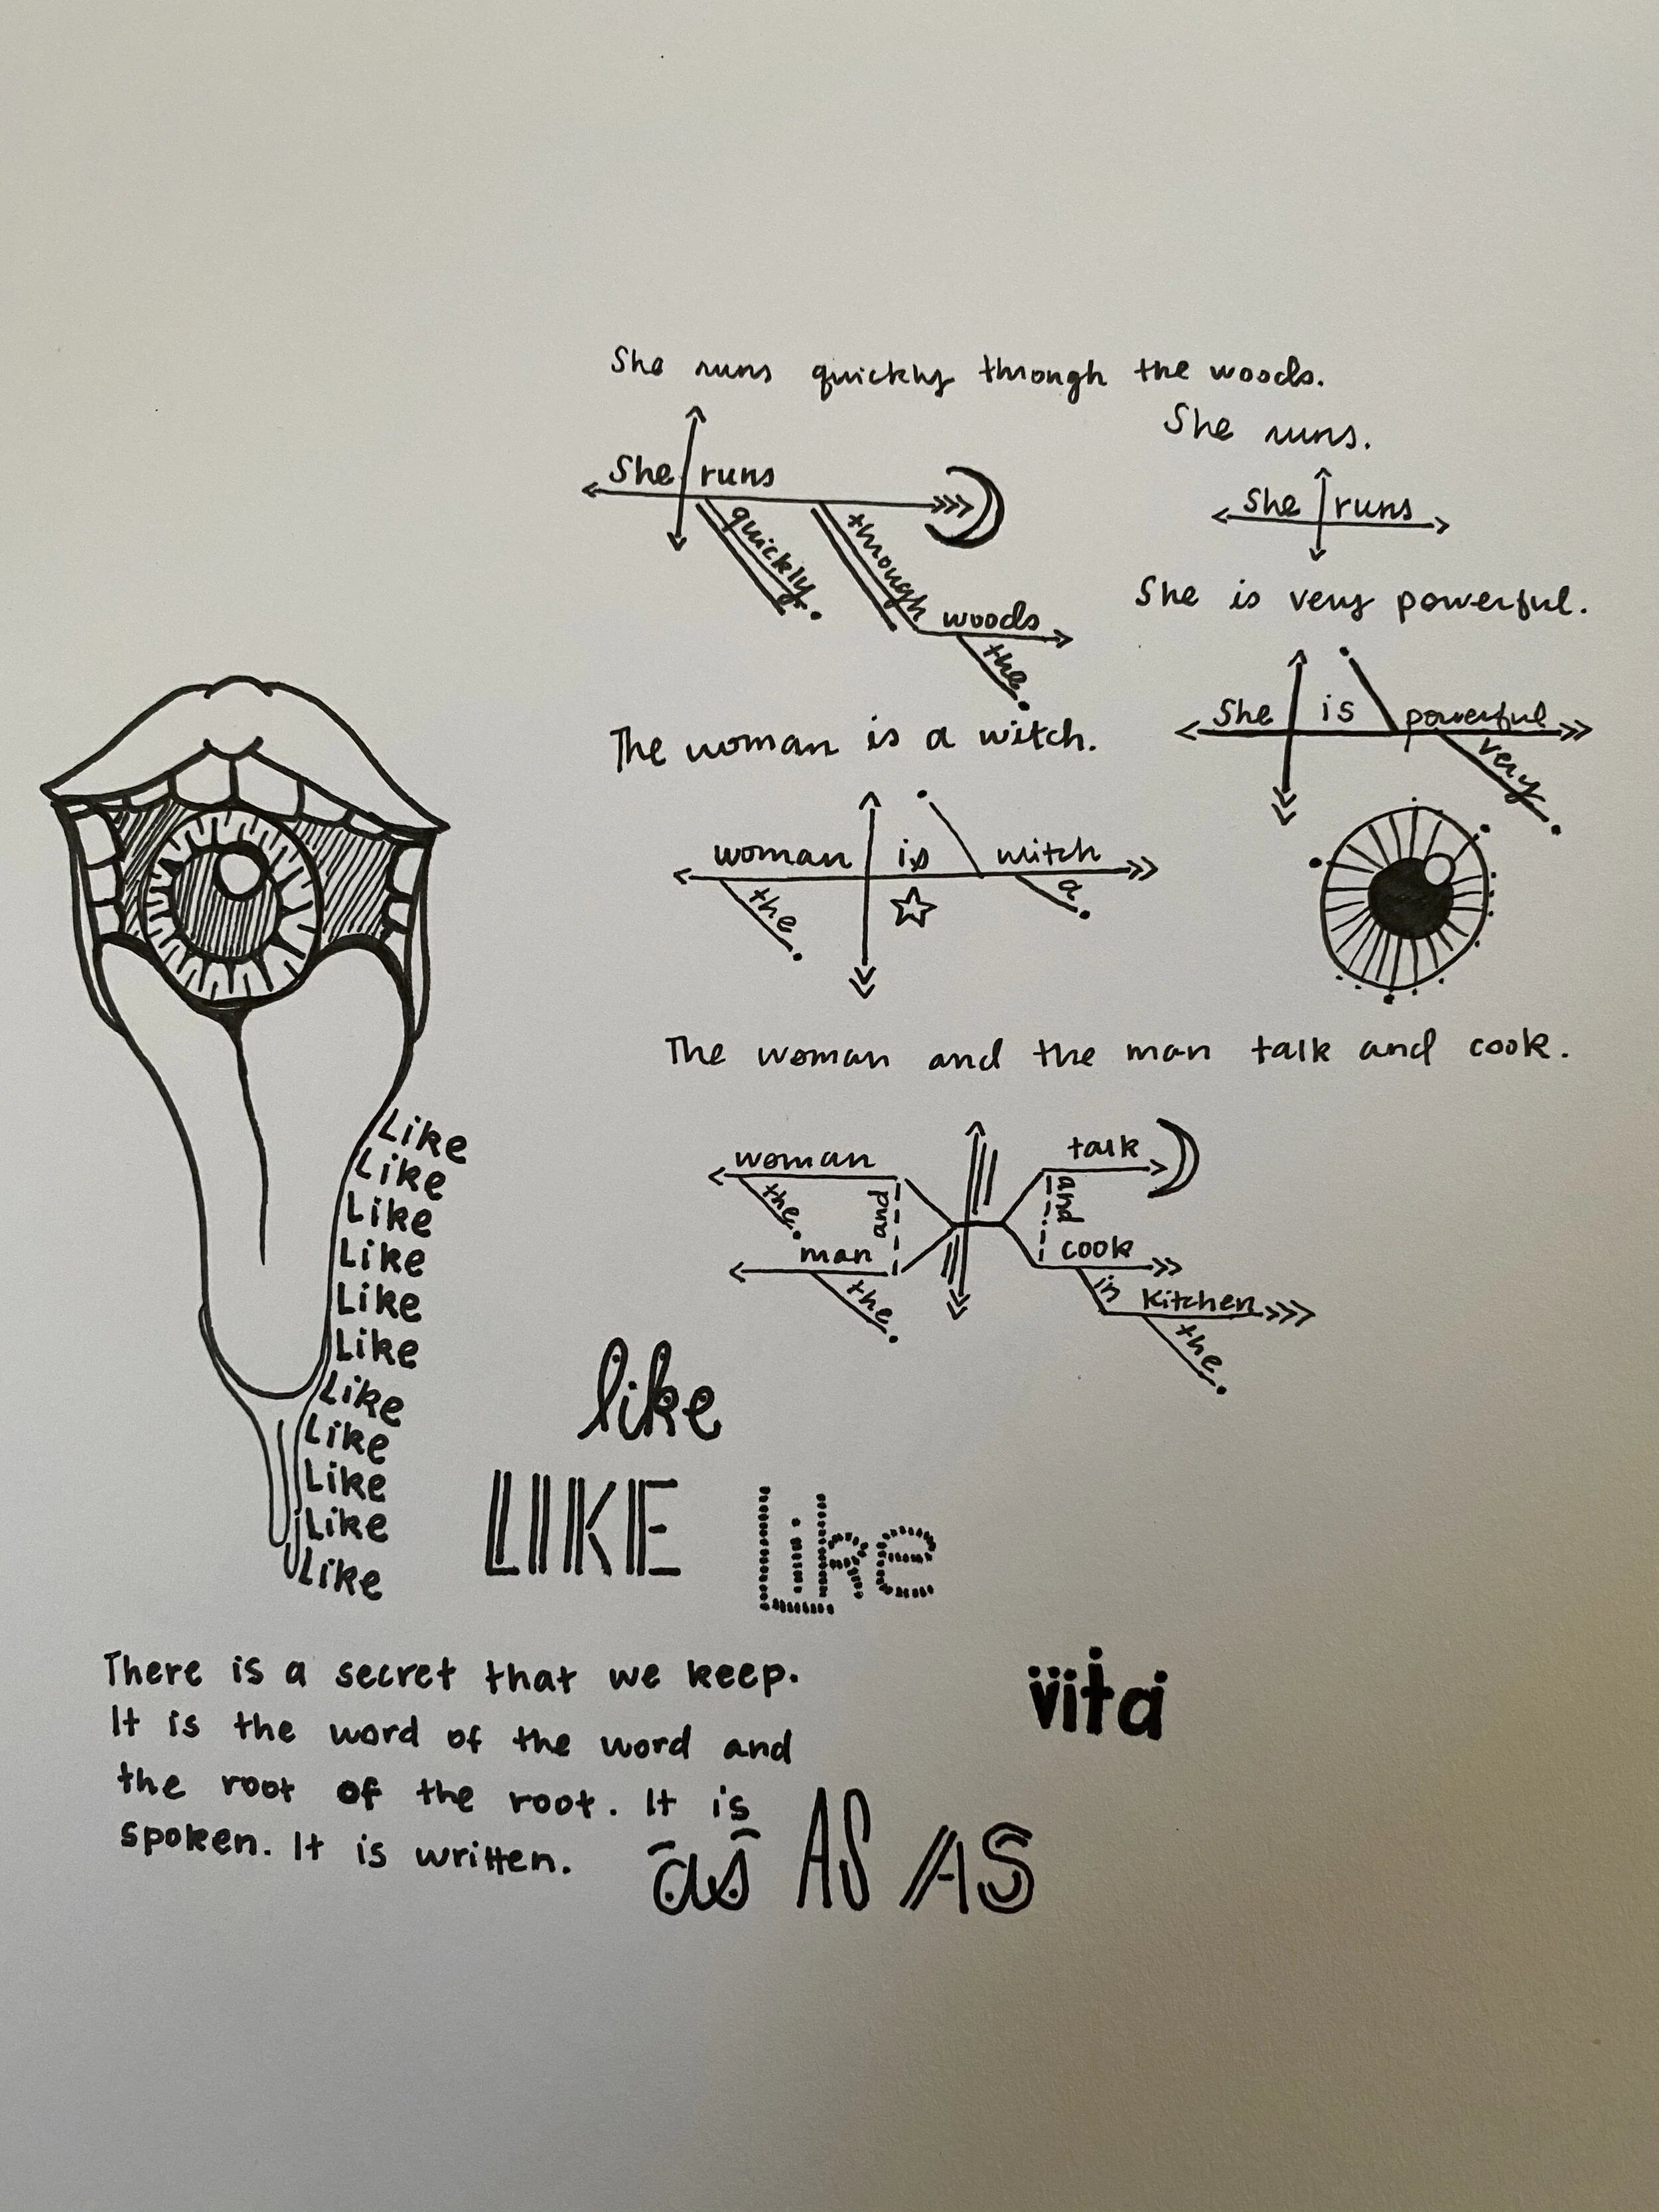 She runs quickly through the woods.
She runs
quickly
through
woods
the
She runs.
She runs
She is very powerful.
She is powerful
very
The woman is a witch.
woman is witch
the
a
The woman and the man talk and cook.
woman
the
and
man
the
talk
and
cook
in
kitchen
the
Like
Like
Like
Like
Like
Like
Like
Like
Like
Like
Like
like
LIKE
Like
There is a secret that we keep.
It is the word of the word and
the root of the root. It is
spoken. It is written.
vita
as AS AS